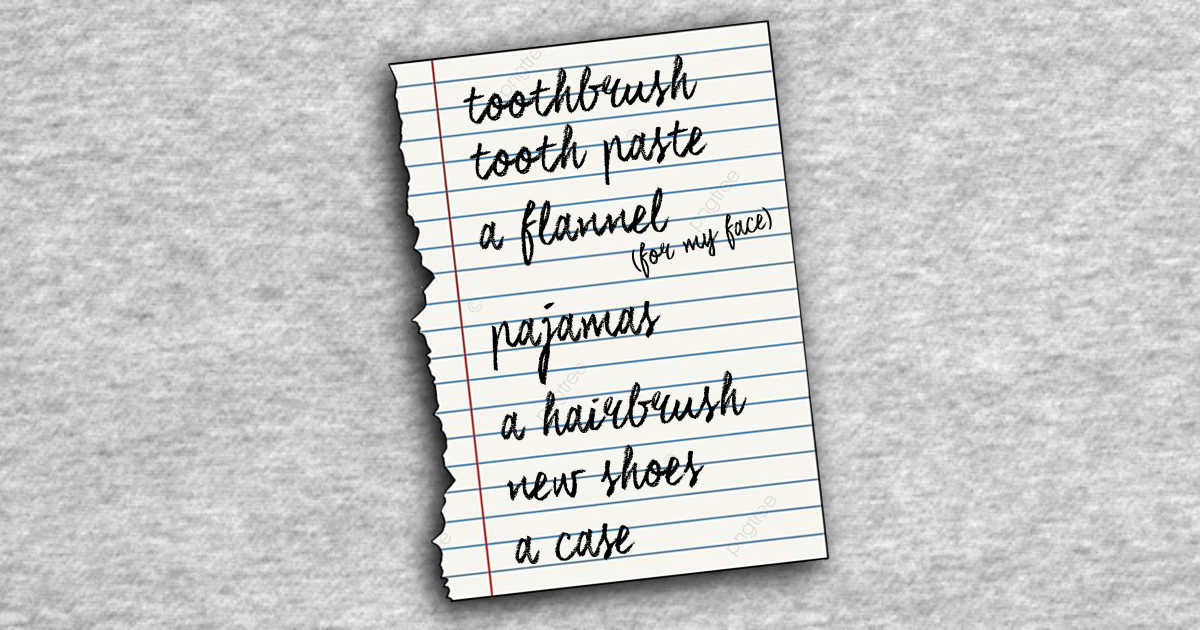 toothbrush
tooth paste
a flannel
(for my face)
pajamas
a hairbrush
new shoes
a case
pngtree
pngtree
pngtree
pngtree